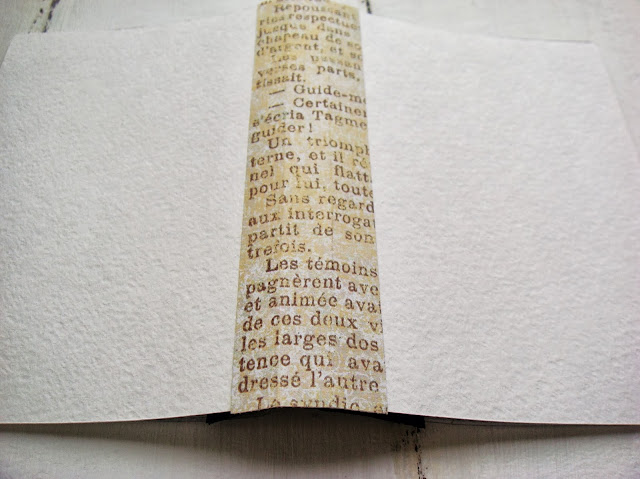 Repoussant
ries respectue
jusque dans
chapeau de so
d'argent, et so
Les passan
verses parts,
tissait.
— Guide-mo
— Certainer
s'écria Tagme
guider!
Un triomph
terne, et il ré
nel qui flatt
pour lui, toute
Sans regard
aux interrogat
partit de son
trefois.
Les témoins
pagnèrent ave
et animée ava
de ces deux vi
les larges dos
tence qui ava
dressé l'autre
Le syndic a